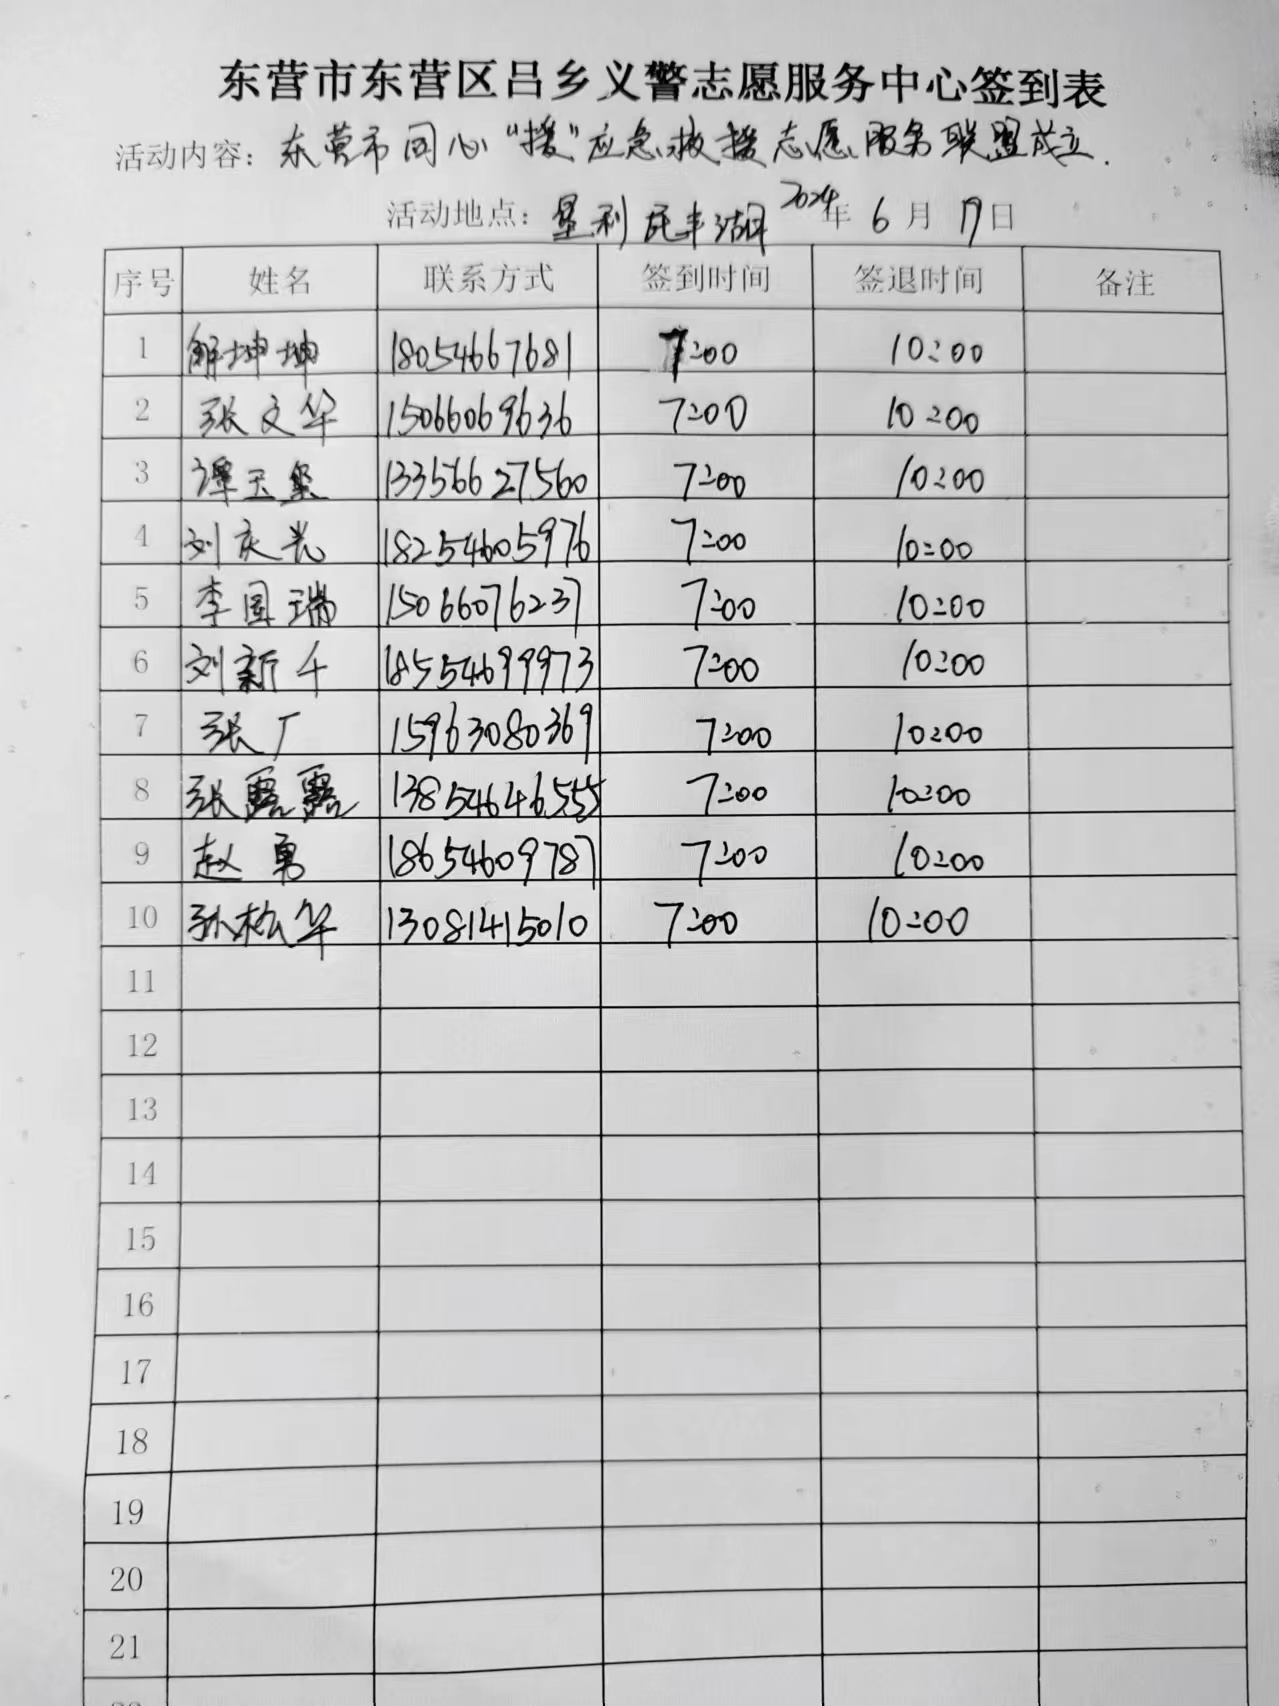 东营市东营区吕乡义警志愿服务中心签到表
活动内容：东营市同心“援”应急救援志愿服务联盟成立.
活动地点：垦利民丰湖 2024年 6 月 17 日
序号 姓名 联系方式 签到时间 签退时间 备注
1 解坤坤 18054667681 7:00 10:00
2 张文华 15066069636 7:00 10:00
3 谭玉玺 13356627560 7:00 10:00
4 刘庆光 18254605976 7:00 10:00
5 李国瑞 15066076237 7:00 10:00
6 刘新千 18554699973 7:00 10:00
7 张厂 15963080369 7:00 10:00
8 张露露 13854646555 7:00 10:00
9 赵勇 18654609787 7:00 10:00
10 孙松华 13081415010 7:00 10:00
11
12
13
14
15
16
17
18
19
20
21